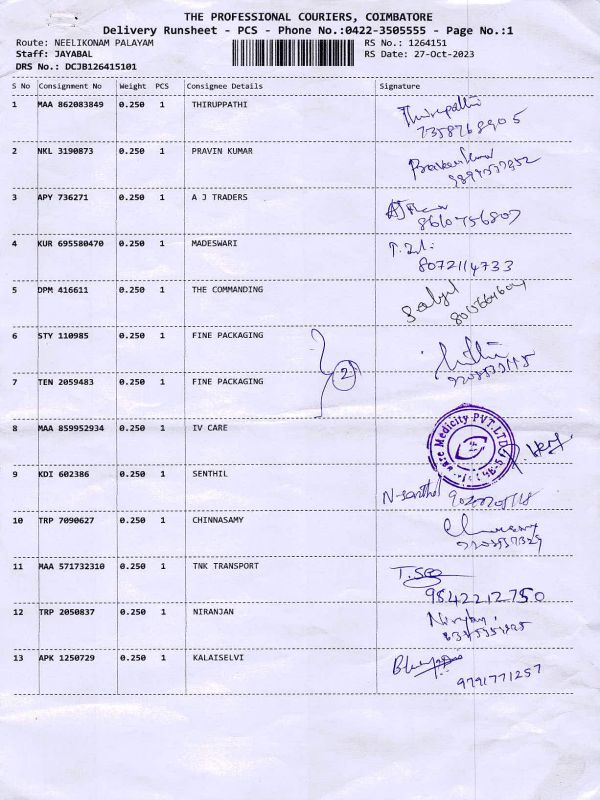 THE PROFESSIONAL COURIERS, COIMBATORE
Delivery Runsheet - PCS - Phone No.:0422-3505555 - Page No.:1
Route: NEELIKONAM PALAYAM RS No.: 1264151
Staff: JAYABAL RS Date: 27-Oct-2023
DRS No.: DCJB126415101
S No Consignment No Weight PCS Consignee Details Signature
1 MAA 862083849 0.250 1 THIRUPPATHI Thirupathi
7358768905
2 NKL 3190873 0.250 1 PRAVIN KUMAR
3 APY 736271 0.250 1 A J TRADERS
8610756807
4 KUR 695580470 0.250 1 MADESWARI
8072114733
5 DPM 416611 0.250 1 THE COMMANDING
6 STY 110985 0.250 1 FINE PACKAGING
2
7 TEN 2059483 0.250 1 FINE PACKAGING
8 MAA 859952934 0.250 1 IV CARE Medicity PVT.LTD
9 KDI 602386 0.250 1 SENTHIL
N-senthil
10 TRP 7090627 0.250 1 CHINNASAMY
11 MAA 571732310 0.250 1 TNK TRANSPORT
9842212750
12 TRP 2050837 0.250 1 NIRANJAN Niranjan
13 APK 1250729 0.250 1 KALAISELVI
9791771257